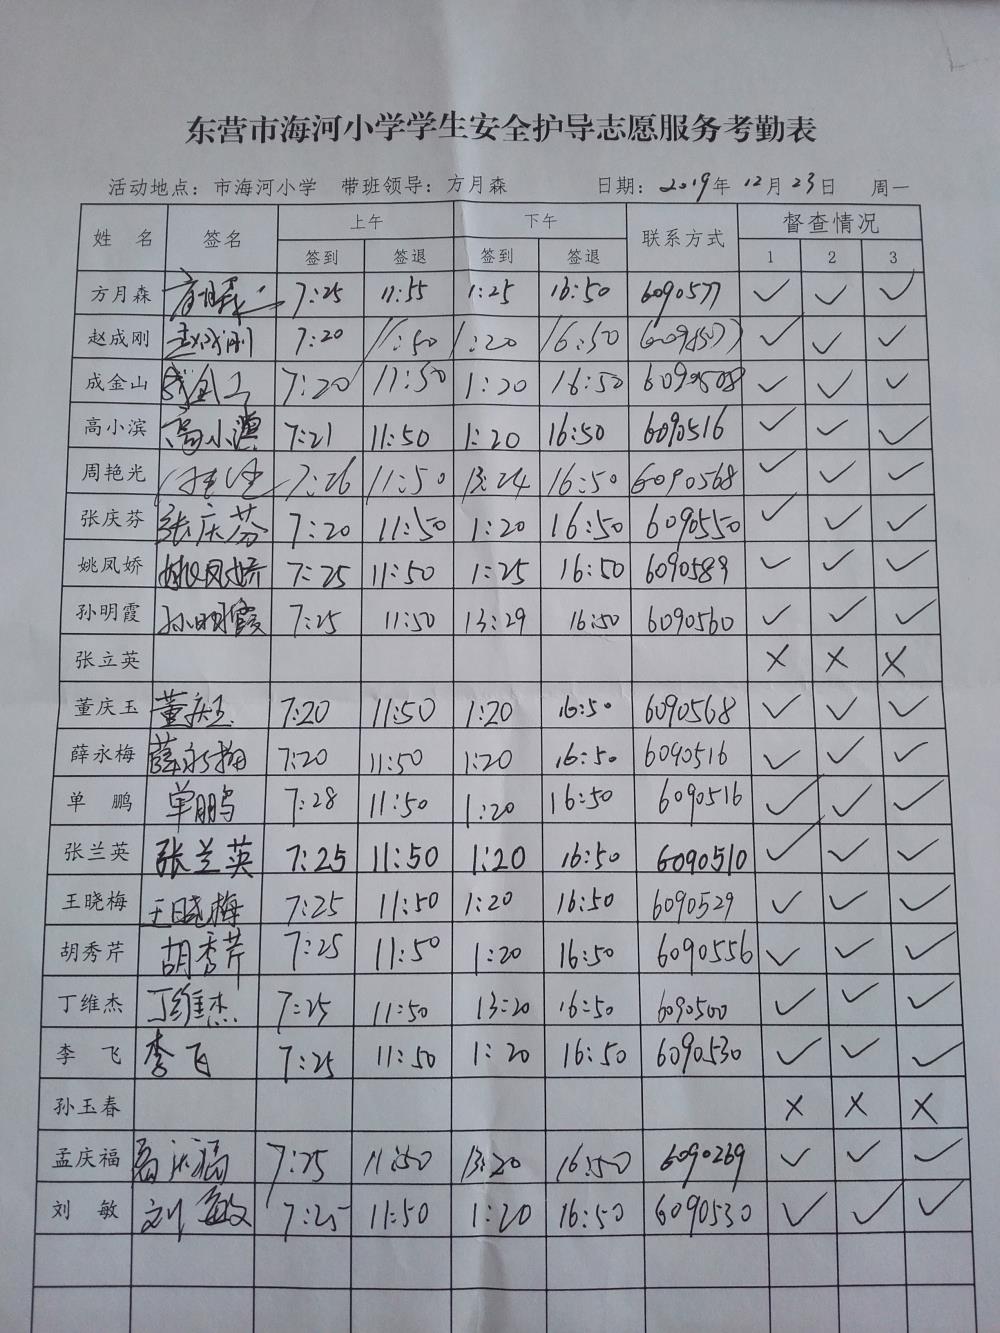 东营市海河小学学生安全护导志愿服务考勤表
活动地点：市海河小学 带班领导：方月森 日期：2019年12月23日 周一
姓 名 签名 上午 下午 联系方式 督查情况
签到 签退 签到 签退 1 2 3
方月森 方月森 7:25 11:55 1:25 16:50 6090577 ✓ ✓ ✓
赵成刚 赵成刚 7:20 11:50 1:20 16:50 6090577 ✓ ✓ ✓
成金山 成金山 7:20 11:50 1:20 16:50 6090508 ✓ ✓ ✓
高小滨 高小滨 7:21 11:50 1:20 16:50 6090516 ✓ ✓ ✓
周艳光 7:26 11:50 13:24 16:50 6090568 ✓ ✓ ✓
张庆芬 张庆芬 7:20 11:50 1:20 16:50 6090550 ✓ ✓ ✓
姚凤娇 姚凤娇 7:25 11:50 1:25 16:50 6090589 ✓ ✓ ✓
孙明霞 孙明霞 7:25 11:50 13:29 16:50 6090560 ✓ ✓ ✓
张立英 × × ×
董庆玉 董庆玉 7:20 11:50 1:20 16:50 6090568 ✓ ✓ ✓
薛永梅 薛永梅 7:20 11:50 1:20 16:50 6090516 ✓ ✓ ✓
单 鹏 单鹏 7:28 11:50 1:20 16:50 6090516 ✓ ✓ ✓
张兰英 张兰英 7:25 11:50 1:20 16:50 6090510 ✓ ✓ ✓
王晓梅 王晓梅 7:25 11:50 1:20 16:50 6090529 ✓ ✓ ✓
胡秀芹 胡秀芹 7:25 11:50 1:20 16:50 6090556 ✓ ✓ ✓
丁维杰 丁维杰 7:25 11:50 13:20 16:50 6090500 ✓ ✓ ✓
李 飞 李飞 7:25 11:50 1:20 16:50 6090530 ✓ ✓ ✓
孙玉春 × × ×
孟庆福 孟庆福 7:25 11:50 13:20 16:50 6090269 ✓ ✓ ✓
刘 敏 刘敏 7:25 11:50 1:20 16:50 6090530 ✓ ✓ ✓